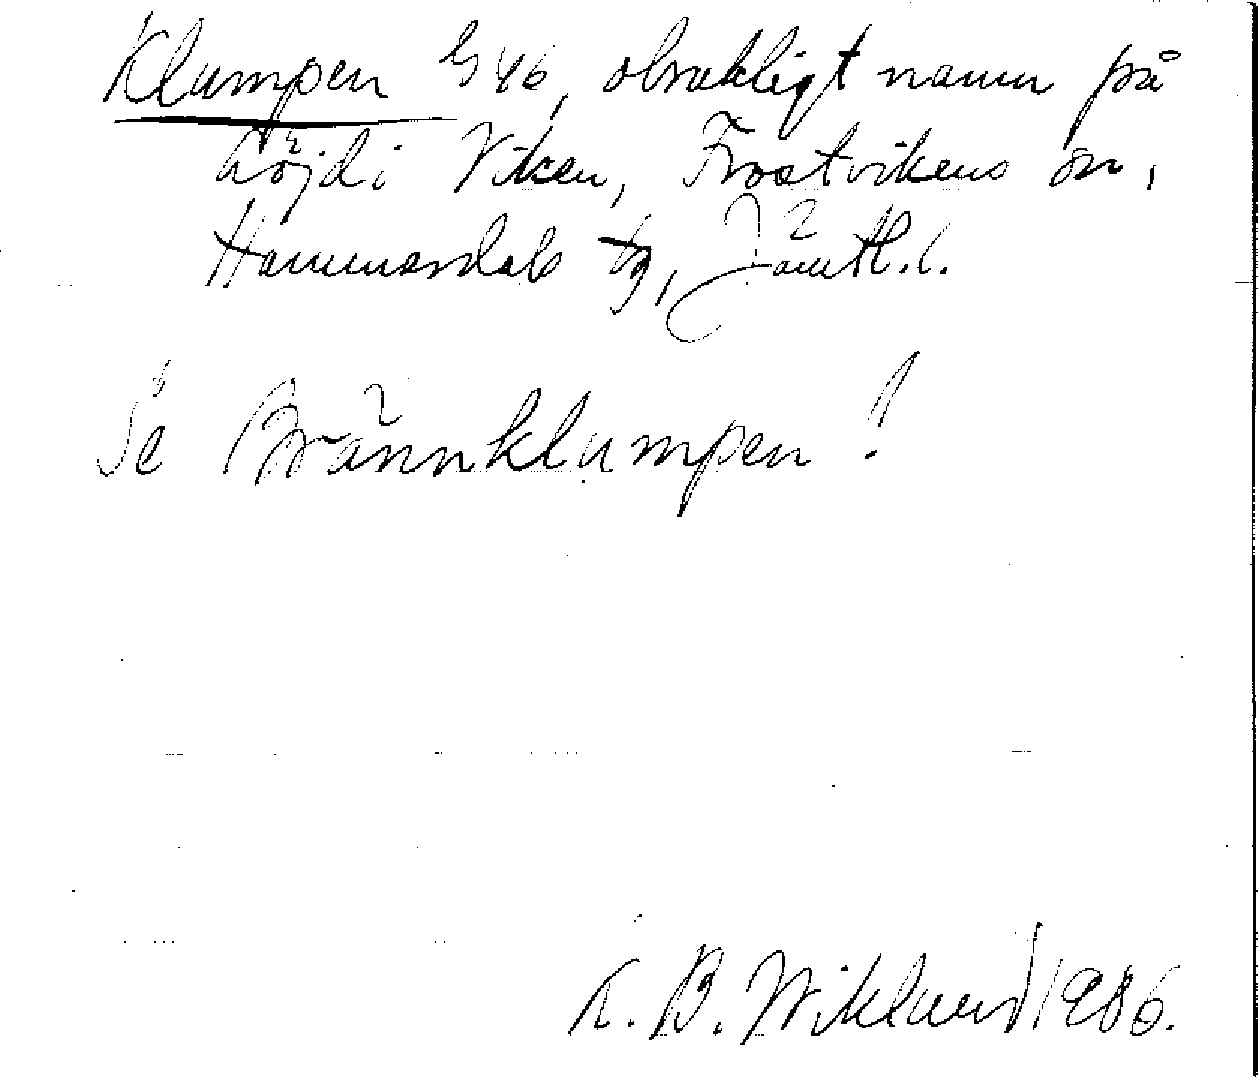 Klumpen G46, obrukligt namn på
höjd i Viken, Frostvikens sn,
Hammerdals tg, Jämtl. l.
Se Brännklumpen!
K. B. Wiklund 1986.